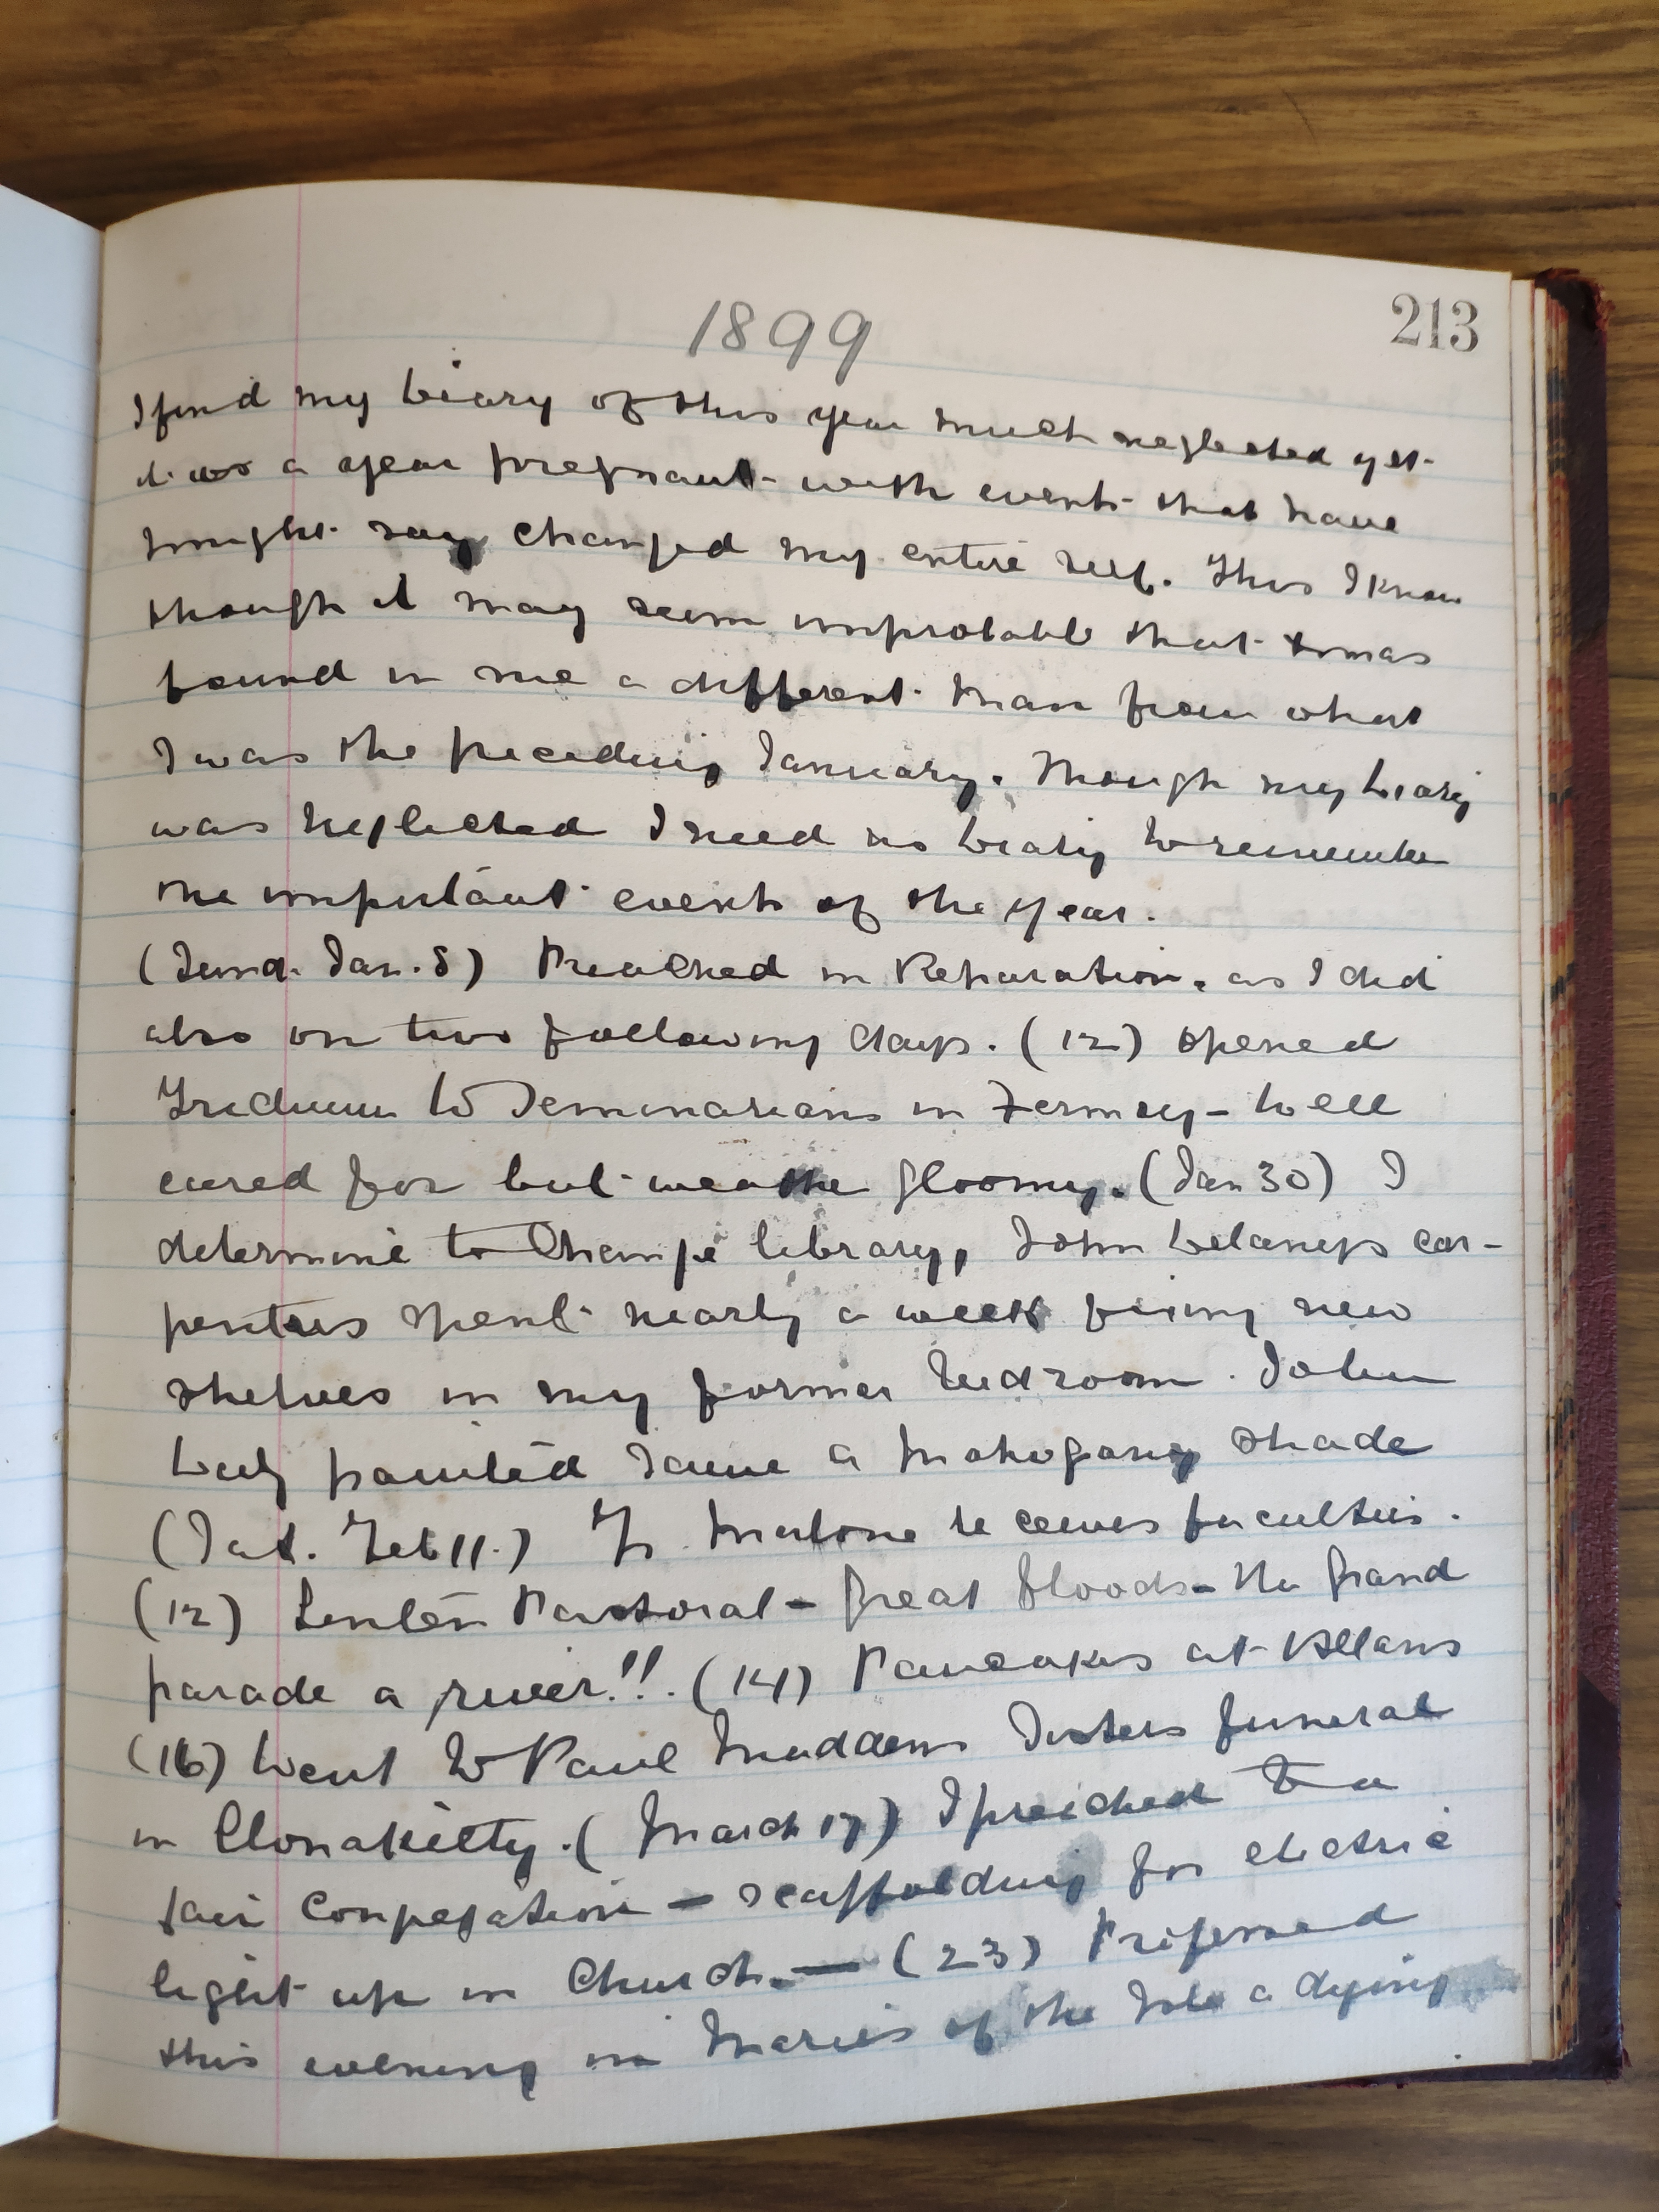 213
1899
I find my Diary of this year much neglected yet
it was a year pregnant with events that have
might say changed my entire self. This I know
though it may seem improbable that Xmas
found in me a different man from what
I was the preceding January. Though my Diary
was neglected I need no Diary to remember
the important events of the year.
(Sund. Jan. 8) Preached in Reparation, as I did
also on two following days. (12) opened
Triduum to Seminarians in Fermoy - Well
cared for but weather gloomy. (Jan 30) I
determine to change library, John Delaneys car-
penters spent nearly a week fixing new
shelves in my former bedroom. John
Daly painted same a Mahogany shade
(Sat. Feb 11.) Fr. Malone receives faculties.
(12) Lenten Pastoral - Great floods - the Grand
parade a river!!. (14) Pancakes at Allans
(16) Went to Paul Maddens Sisters funeral
in Clonakilty. (March 17) I preached to a
fair Congregation - scaffolding for electric
light up in Church. — (23) Professed
this evening in Maries of the Isle a dying